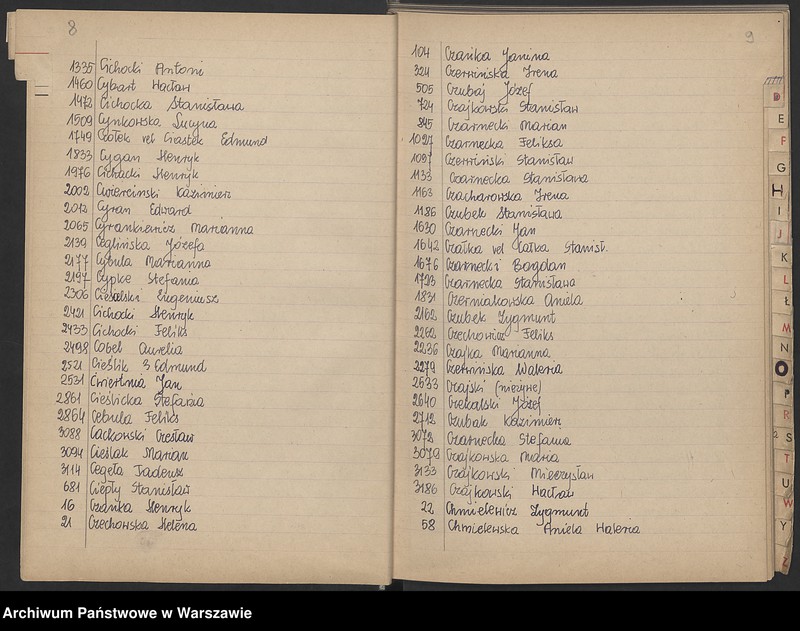 8
1335 Cichocki Antoni
1460 Cybart Wacław
1472 Cichocka Stanisława
1509 Cynkowska Lucyna
1749 Ciołek vel Ciastek Edmund
1833 Cygan Henryk
1976 Cichacki Henryk
2002 Ćwierciński Kazimierz
2012 Cyran Edward
2065 Cyrankiewicz Marianna
2139 Ceglińska Józefa
2177 Cybula Marianna
2197 Cypke Stefania
2306 Ciesielski Eugeniusz
2421 Cichocki Henryk
2433 Cichocki Feliks
2498 Cobel Aurelia
2521 Cieślik Edmund
2531 Ćwiertnia Jan
2861 Cieślicka Stefania
2864 Cebula Feliks
3088 Cackowski Czesław
3094 Cieślak Marian
3114 Cegeła Tadeusz
681 Ciepły Stanisław
16 Czarka Henryk
21 Czechowska Helena
9
104 Czarka Janina
324 Czerwińska Irena
505 Czubaj Józef
724 Czajkowski Stanisław
845 Czarnecki Marian
1027 Czarnecka Feliksa
1037 Czerwiński Stanisław
1133 Czarnecka Stanisława
1163 Czacharowska Irena
1186 Czubek Stanisława
1630 Czarnecki Jan
1642 Czałka vel Całka Stanisł.
1676 Czarnecki Bogdan
1793 Czarnecka Stanisława
1831 Czerniakowska Aniela
2162 Czubek Zygmunt
2262 Czechowicz Feliks
2236 Czajka Marianna
2279 Czerwińska Waleria
2533 Czajski (nieżyje)
2640 Czekalski Józef
2712 Czubak Kazimierz
3072 Czarnecka Stefania
3079 Czajkowska Maria
3133 Czajkowski Mieczysław
3186 Czajkowski Wacław
22 Chmielewicz Zygmunt
58 Chmielewska Aniela Waleria
D
E
F
G
H
I
J
K
L
Ł
M
N
O
P
R
S
T
U
W
Y
Z
Archiwum Państwowe w Warszawie